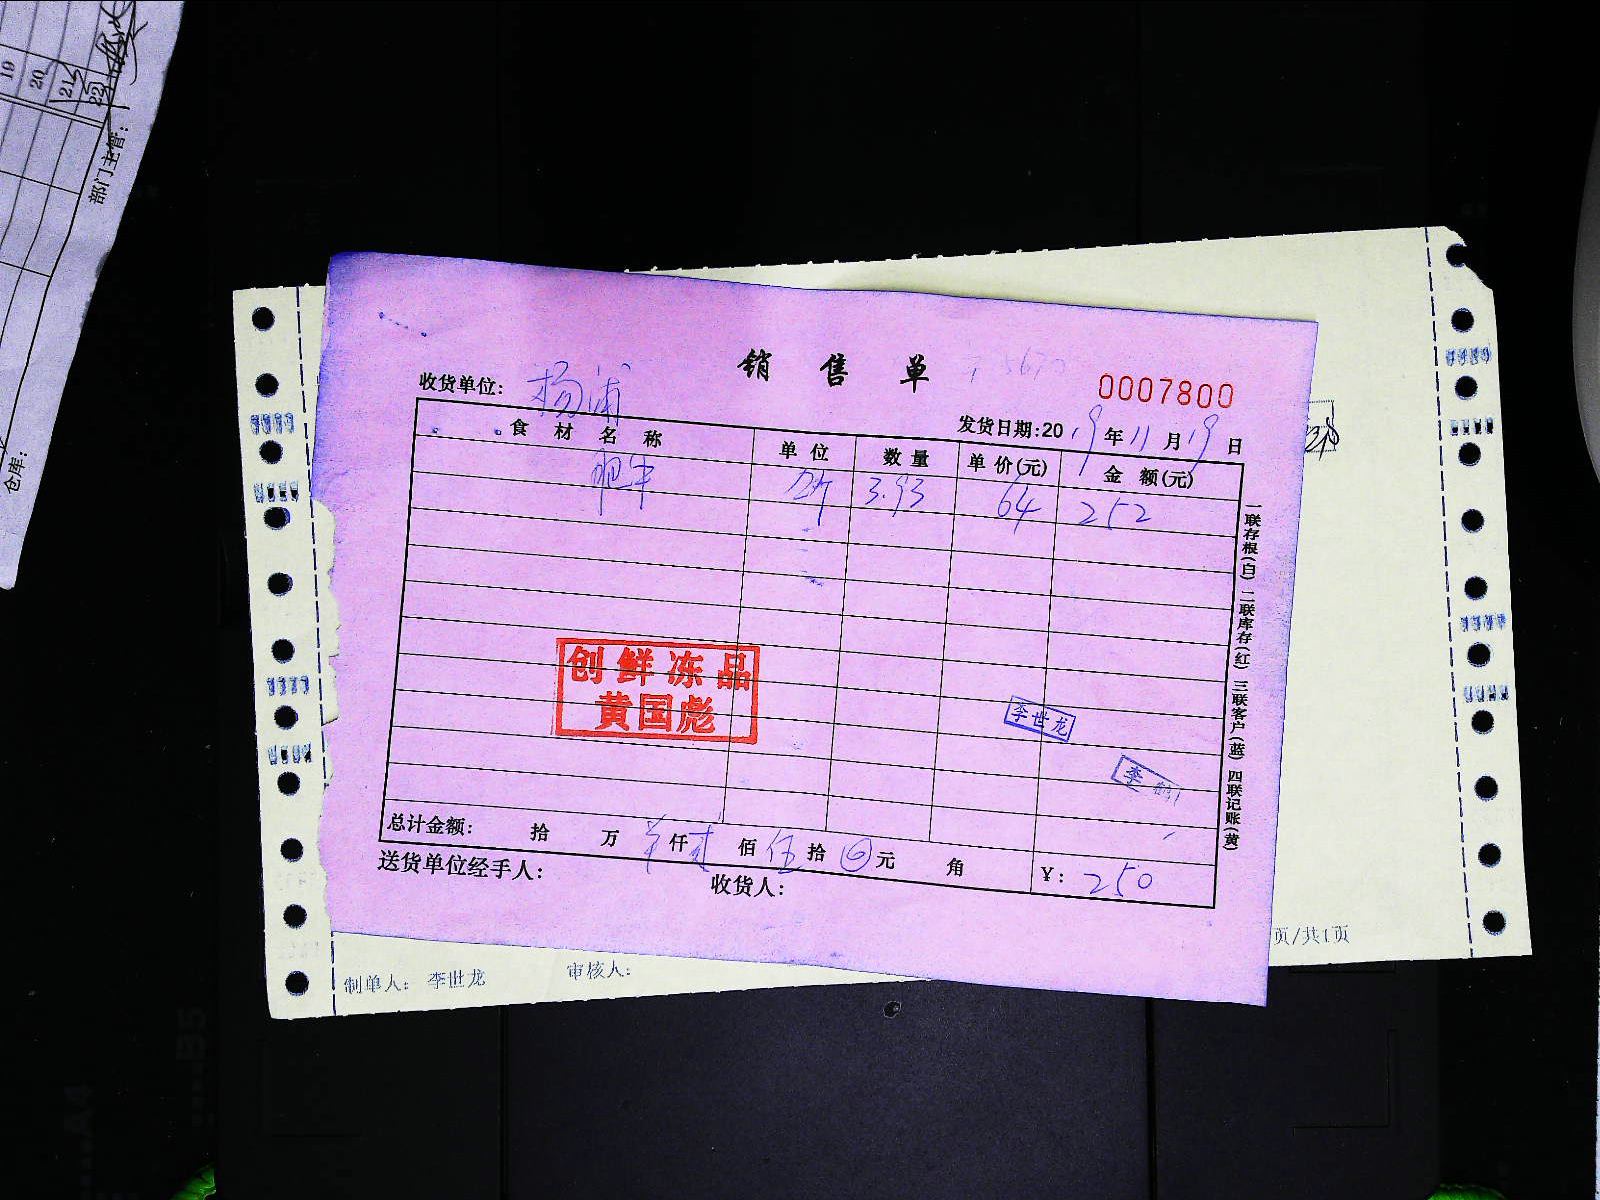 19
20
21
22
部门主管:
仓库:
销售单
0007800
收货单位: 杨浦
发货日期:2019年11月19日
食材名称 单位 数量 单价(元) 金额(元)
肥牛 斤 3.93 64 252
创鲜冻品
黄国彪
李世龙
李
总计金额: 拾 万 仟贰佰伍拾 元 角 ¥: 250
送货单位经手人: 收货人:
一联存根(白) 二联库存(红) 三联客户(蓝) 四联记账(黄)
页/共1页
制单人: 李世龙 审核人: